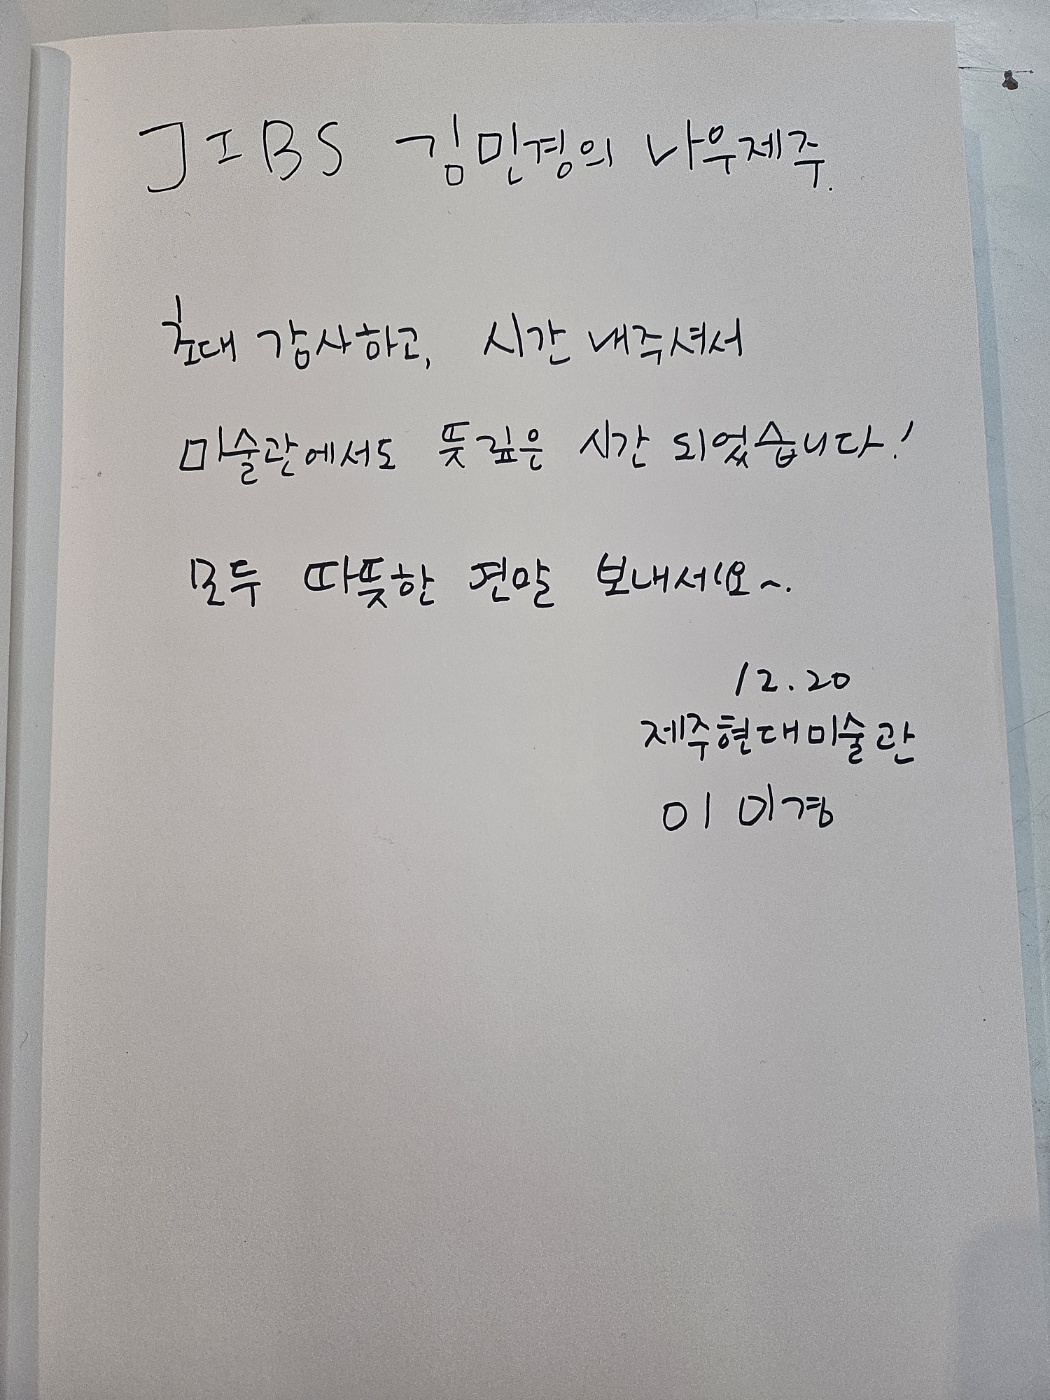 JIBS 김민경의 나우제주.
초대 감사하고, 시간 내주셔서
미술관에서도 뜻깊은 시간 되었습니다!
모두 따뜻한 연말 보내세요~.
12.20
제주현대미술관
이이경